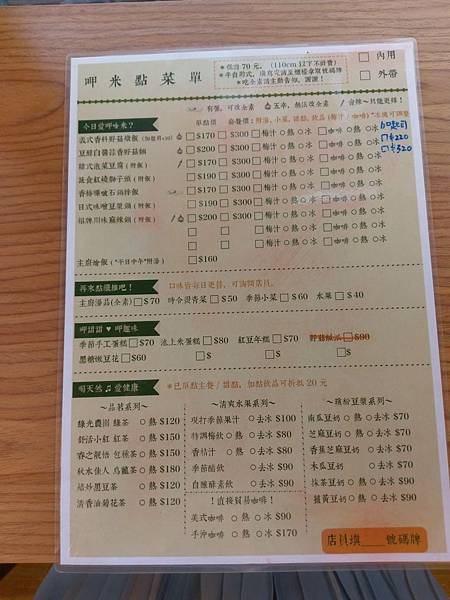 呷米點菜單
*低消70元。(110cm以下不計費)
*吃全素請主動告知,謝謝!
□內用
□外帶
有蛋,可改全素 五辛,無法改全素 含辣~只能更辣!
今日愛呷啥米?
單點價 套餐價
義式香料野菇燉飯(加起司+30) □$170 □$300 □梅汁○熱○冰 □咖啡○熱○冰
豆鮮白醬蒜香野菇麵 □$200 □$300 □梅汁○熱○冰 □咖啡○熱○冰
韓式泡菜豆腐(附飯) □$170 □$300 □梅汁○熱○冰 □咖啡○熱○冰
蔬食紅燒獅子頭(附飯) □$190 □$300 □梅汁○熱○冰 □咖啡○熱○冰
香椿臻祿石鍋拌飯 □$170 □$300 □梅汁○熱○冰 □咖啡○熱○冰
日式味噌豆漿鍋(附飯) □$190 □$300 □梅汁○熱○冰 □咖啡○熱○冰
招牌川味麻辣鍋(附飯) □$200 □$300 □梅汁○熱○冰 □咖啡○熱○冰
□ □ □梅汁○熱○冰 □咖啡○熱○冰
□ □ □梅汁○熱○冰 □咖啡○熱○冰
主廚燴飯("平日中午"附湯) □$160
加起司
□$220
□$320
再來點纖維吧!
口味皆每日更替,可詢問店員。
主廚湯品(全素)□$70 時令燙青菜□$50 季節小菜□$60 水果□$40
呷甜甜♥呷趣味
季節手工蛋糕□$70 池上米蛋糕□$80 紅豆年糕□$70 □$90
黑糖嫩豆花□$60 □$ □$ □$
喝天然♫愛健康
*已單點主餐/甜點,加點飲品可折抵20元
~品茗系列~
綠光農園 綠茶 ○熱$120
舒活小紅 紅茶 ○熱$150
春之靚悟 包種茶 ○熱$150
秋水佳人 烏龍茶 ○熱$180
焙炒黑豆茶 ○熱$120
清香油菊花茶 ○熱$120
~清爽水果系列~
現打季節果汁 ○去冰$100
特調梅飲 ○熱 ○去冰$80
香桔汁 ○熱 ○去冰$80
季節醋飲 ○去冰$90
自釀酵素飲 ○去冰$90
!直接貿易咖啡!
美式咖啡 ○熱 ○冰$90
手沖咖啡 ○熱 ○冰$170
~繽紛豆漿系列~
南瓜豆奶 ○熱 ○去冰$70
芝麻豆奶 ○熱 ○去冰$70
香蕉芝麻豆奶 ○去冰$70
木瓜豆奶 ○去冰$70
抹茶豆奶 ○熱 ○去冰$90
薑黃豆奶 ○熱 ○去冰$90
店員填____號碼牌